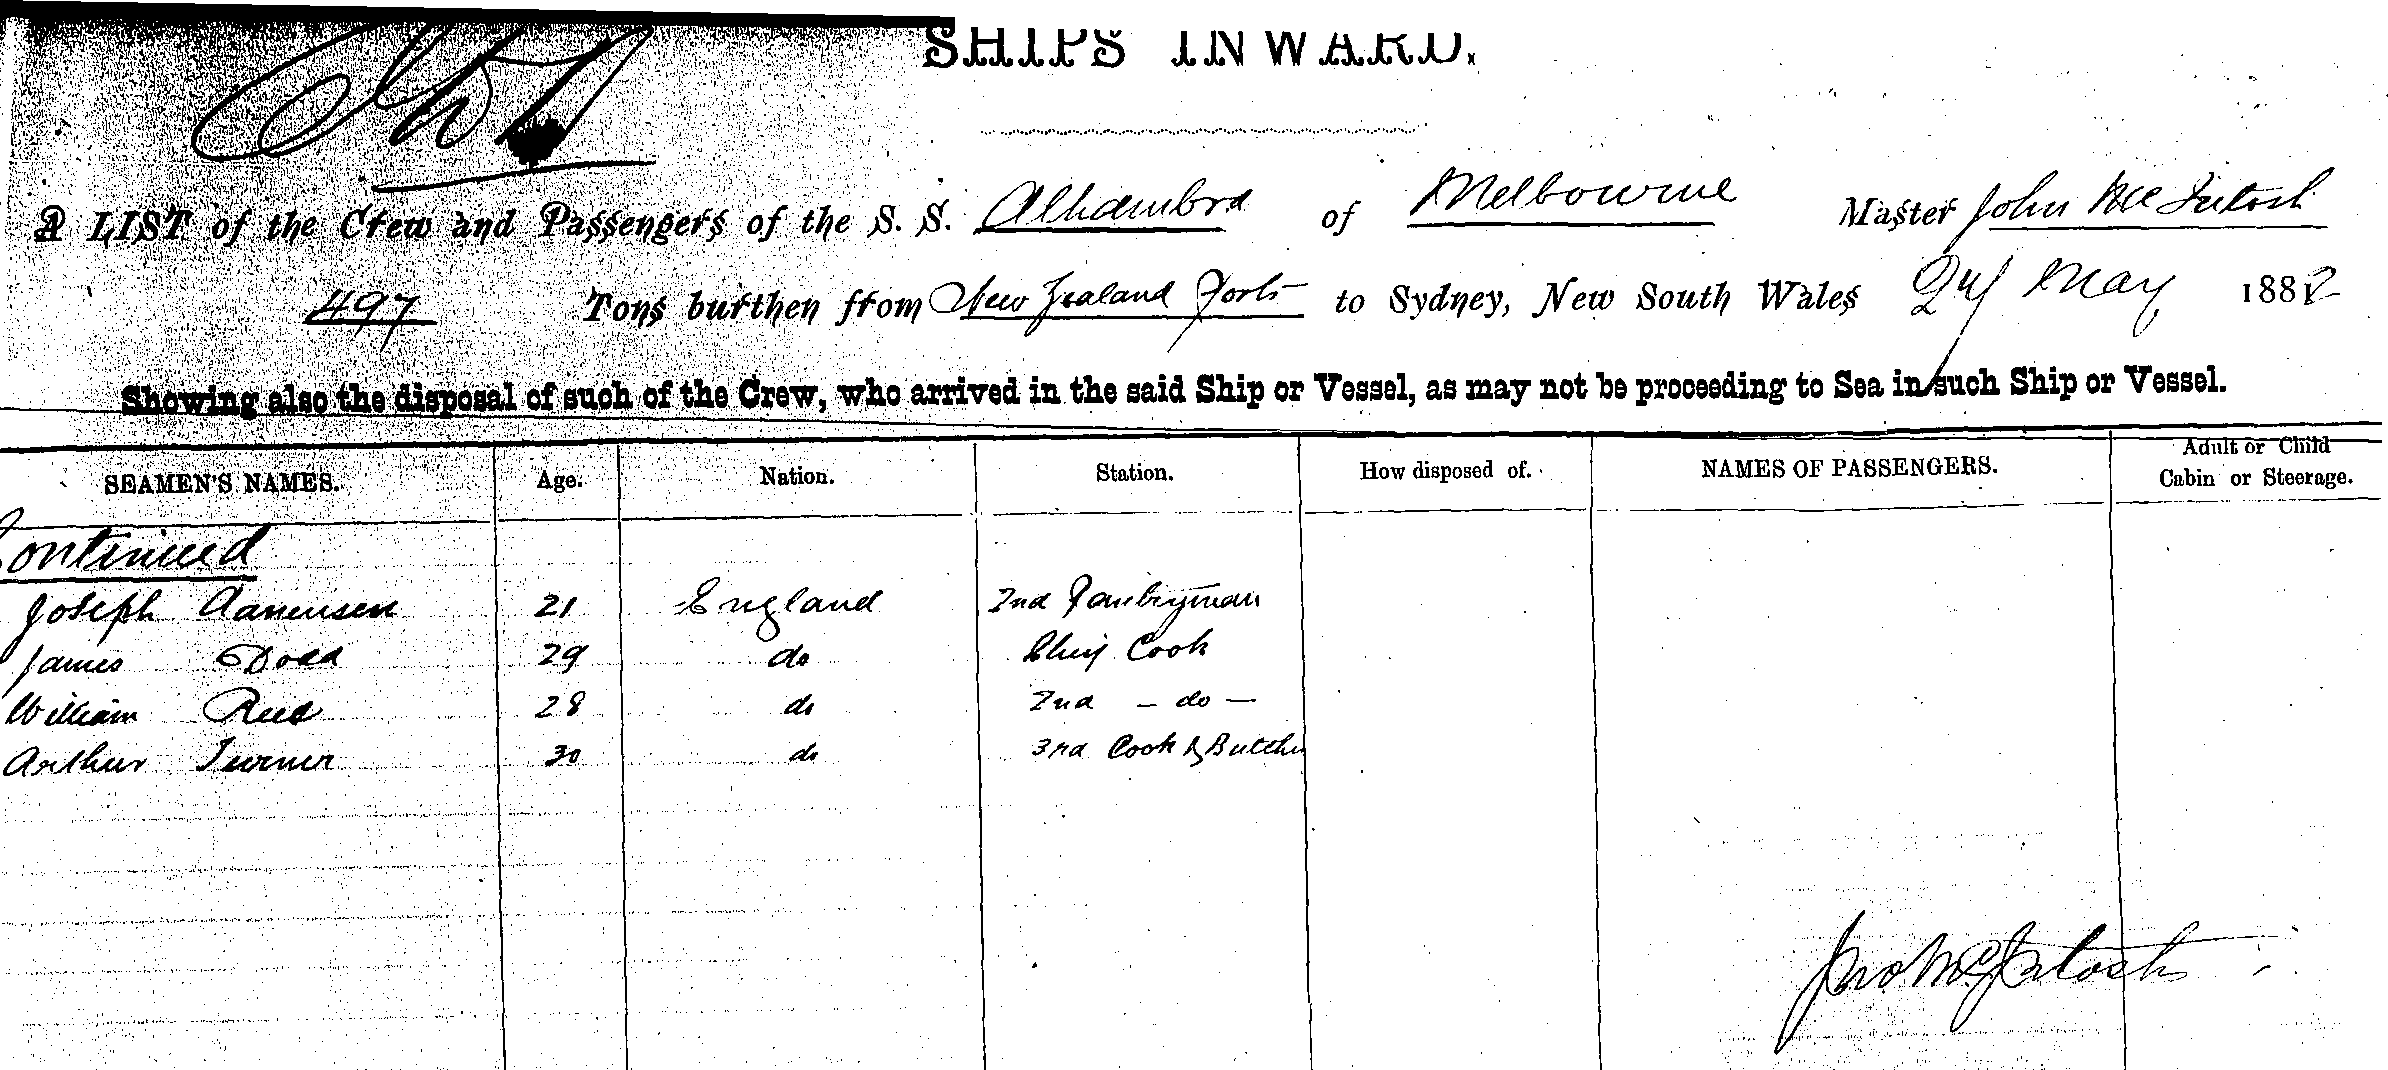 SHIPS INWARD.
A LIST of the Crew and Passengers of the S. S. Alhambra of Melbourne Master John McIntosh
497 Tons burthen from New Zealand Ports to Sydney, New South Wales May 1882
Showing also the disposal of such of the Crew, who arrived in the said Ship or Vessel, as may not be proceeding to Sea in such Ship or Vessel.
SEAMEN'S NAMES. Age. Nation. Station. How disposed of. NAMES OF PASSENGERS. Adult or Child Cabin or Steerage.
Continued
Joseph 21 England 2nd Pantryman
James Dodd 29 do Chief Cook
William Reid 28 do 2nd - do -
Arthur Turner 30 do 3rd Cook & Butcher
Jno McIntosh